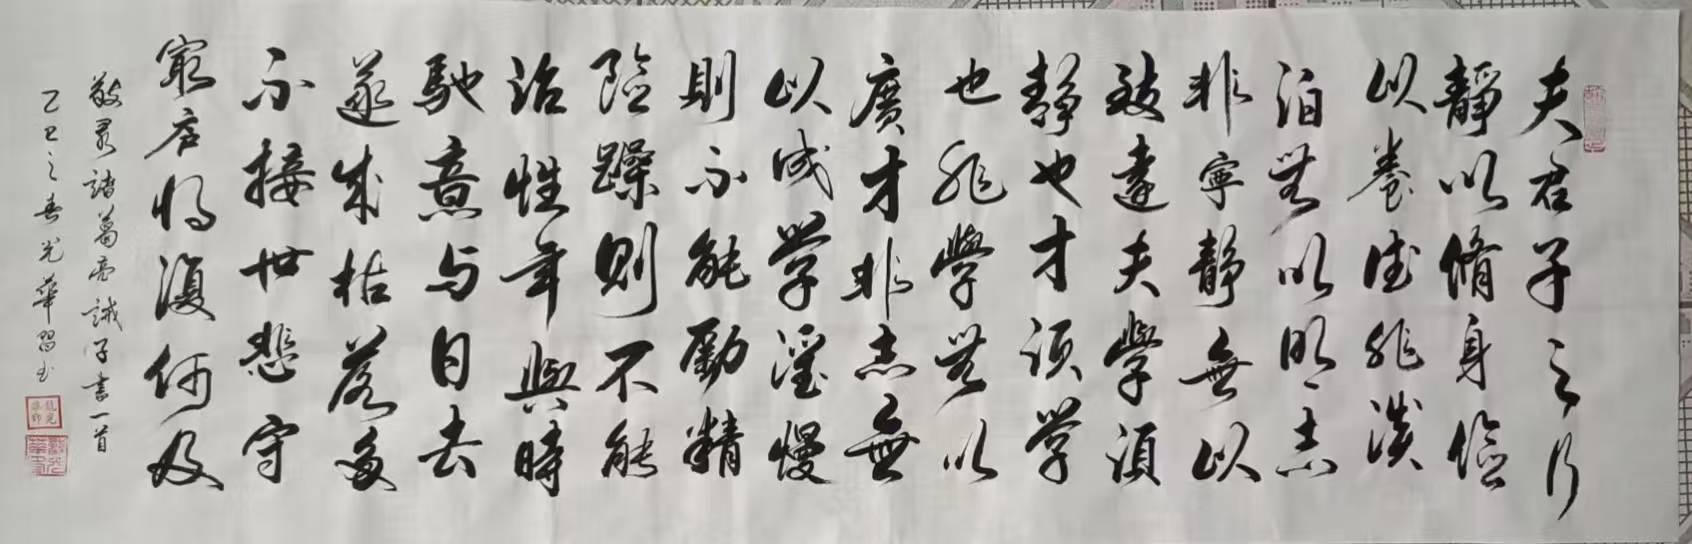 夫君子之行
靜以脩身儉
以養德非淡
泊無以明志
非寧靜無以
致遠夫學須
靜也才須學
也非學無以
廣才非志無
以成學淫慢
則不能勵精
險躁則不能
治性年與時
馳意与日去
遂成枯落多
不接世悲守
窮廬將復何及
敬录諸葛亮誡子書一首
乙巳之春光華習书